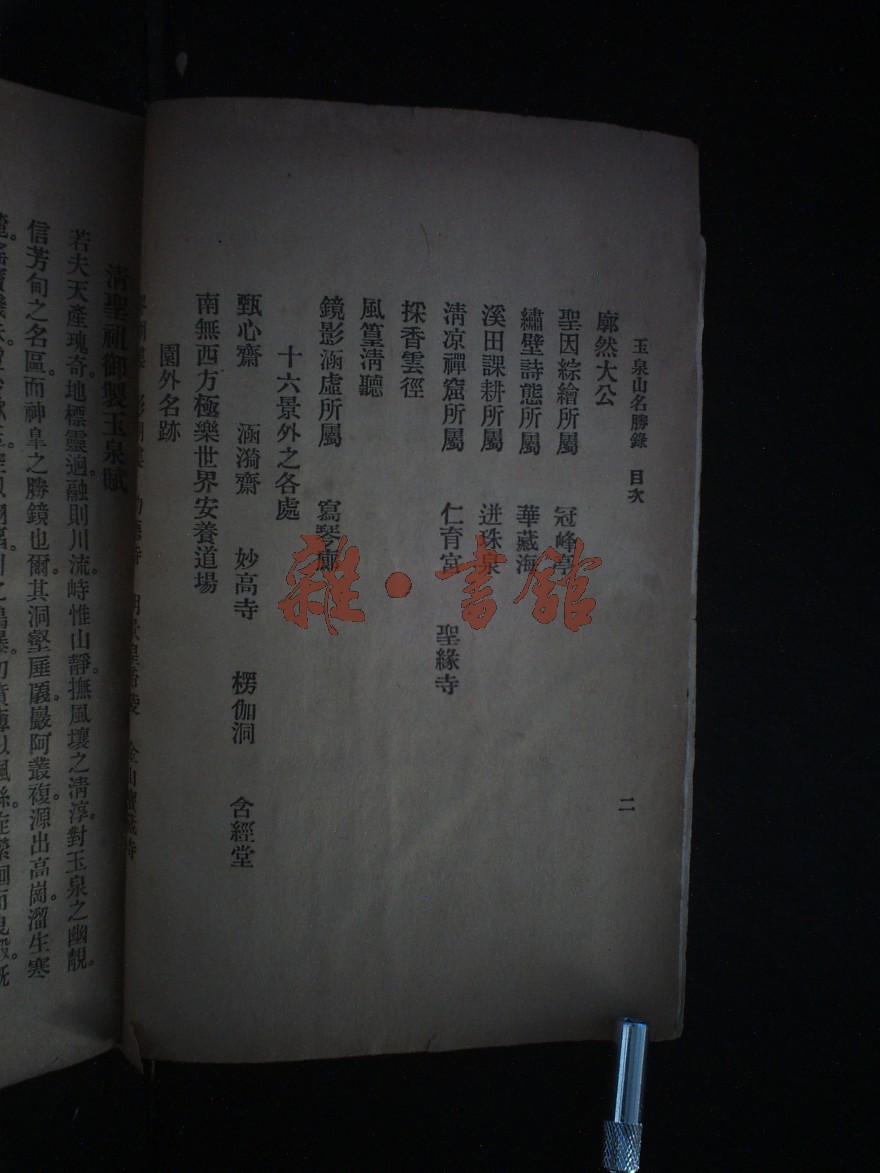 玉泉山名勝錄 目次 二
廓然大公
聖因綜繪所屬 冠峰亭
繡壁詩態所屬 華藏海
溪田課耕所屬 迸珠泉
清凉禪窟所屬 仁育宮 聖緣寺
採香雲徑
風篁清聽
鏡影涵虛所屬 寫琴廊
十六景外之各處
甄心齋 涵漪齋 妙高寺 楞伽洞 含經堂
南無西方極樂世界安養道場
園外名跡
清聖祖御製玉泉賦
若夫天產瑰奇地標靈迥融則川流峙惟山靜撫風壤之清淳對玉泉之幽靚。
信芳甸之名區。而神皐之勝鏡也爾其洞壑厜㕒巖阿叢複源出高崗溜生寒
雜·書館